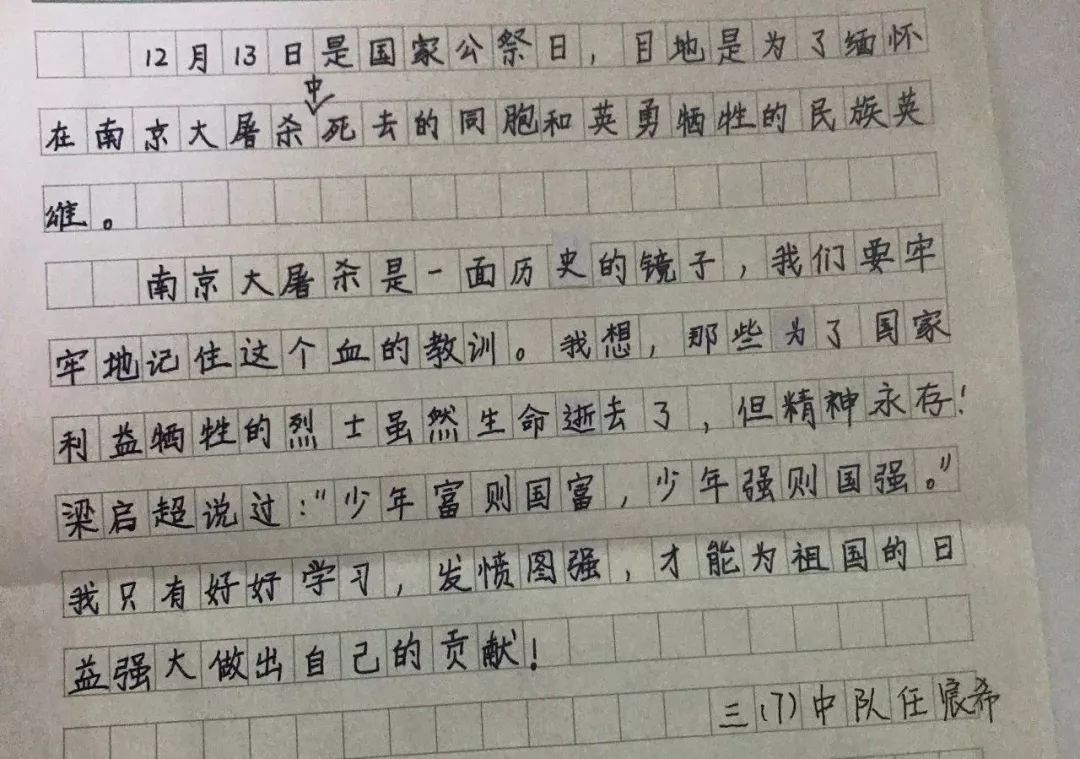 12月13日是国家公祭日，目地是为了缅怀
在南京大屠杀中死去的同胞和英勇牺牲的民族英
雄。
南京大屠杀是一面历史的镜子，我们要牢
牢地记住这个血的教训。我想，那些为了国家
利益牺牲的烈士虽然生命逝去了，但精神永存！
梁启超说过：“少年富则国富，少年强则国强。”
我只有好好学习，发愤图强，才能为祖国的日
益强大做出自己的贡献！
三(7)中队任宸希